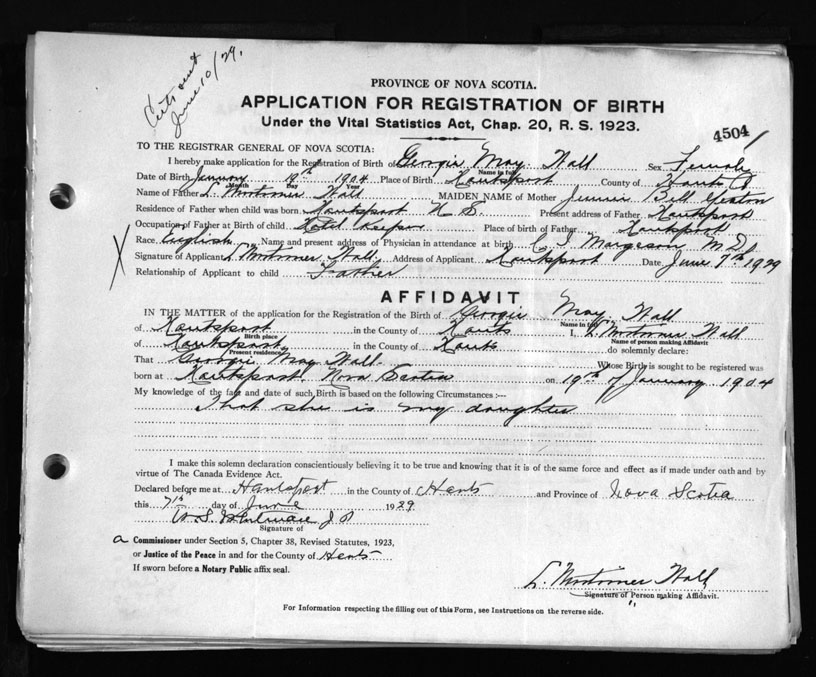 Cert sent
June 10/29.
PROVINCE OF NOVA SCOTIA.
APPLICATION FOR REGISTRATION OF BIRTH
Under the Vital Statistics Act, Chap. 20, R. S. 1923.
4504
TO THE REGISTRAR GENERAL OF NOVA SCOTIA:
I hereby make application for the Registration of Birth of Georgie May Wall Sex Female
Name in full
Date of Birth January 19th 1904 Place of Birth Hantsport County of Hants Co
Month Day Year
Name of Father L. Mortimer Wall MAIDEN NAME of Mother Jennie Bell Yeaton
Residence of Father when child was born Hantsport N. S. Present address of Father Hantsport
Occupation of Father at Birth of child Hotel Keeper Place of birth of Father Hantsport
X Race English Name and present address of Physician in attendance at birth C. I. Margeson M. D.
Signature of Applicant L. Mortimer Wall. Address of Applicant Hantsport Date June 7th 1929
Relationship of Applicant to child Father
AFFIDAVIT
IN THE MATTER of the application for the Registration of the Birth of Georgie May Wall
Name in full
of Hantsport in the County of Hants I, L. Mortimer Wall
Birth place Name of person making Affidavit
of Hantsport in the County of Hants do solemnly declare:
Present residence
That Georgie May Wall Whose Birth is sought to be registered was
born at Hantsport, Nova Scotia on 19th of January 1904
My knowledge of the fact and date of such Birth is based on the following Circumstances :—
That she is my daughter
I make this solemn declaration conscientiously believing it to be true and knowing that it is of the same force and effect as if made under oath and by
virtue of The Canada Evidence Act.
Declared before me at Hantsport in the County of Hants and Province of Nova Scotia
this 7th day of June 1929
W. S. J P
Signature of
a Commissioner under Section 5, Chapter 38, Revised Statutes, 1923,
or Justice of the Peace in and for the County of Hants
If sworn before a Notary Public affix seal.
L. Mortimer Wall
Signature of Person making Affidavit.
For Information respecting the filling out of this Form, see Instructions on the reverse side.